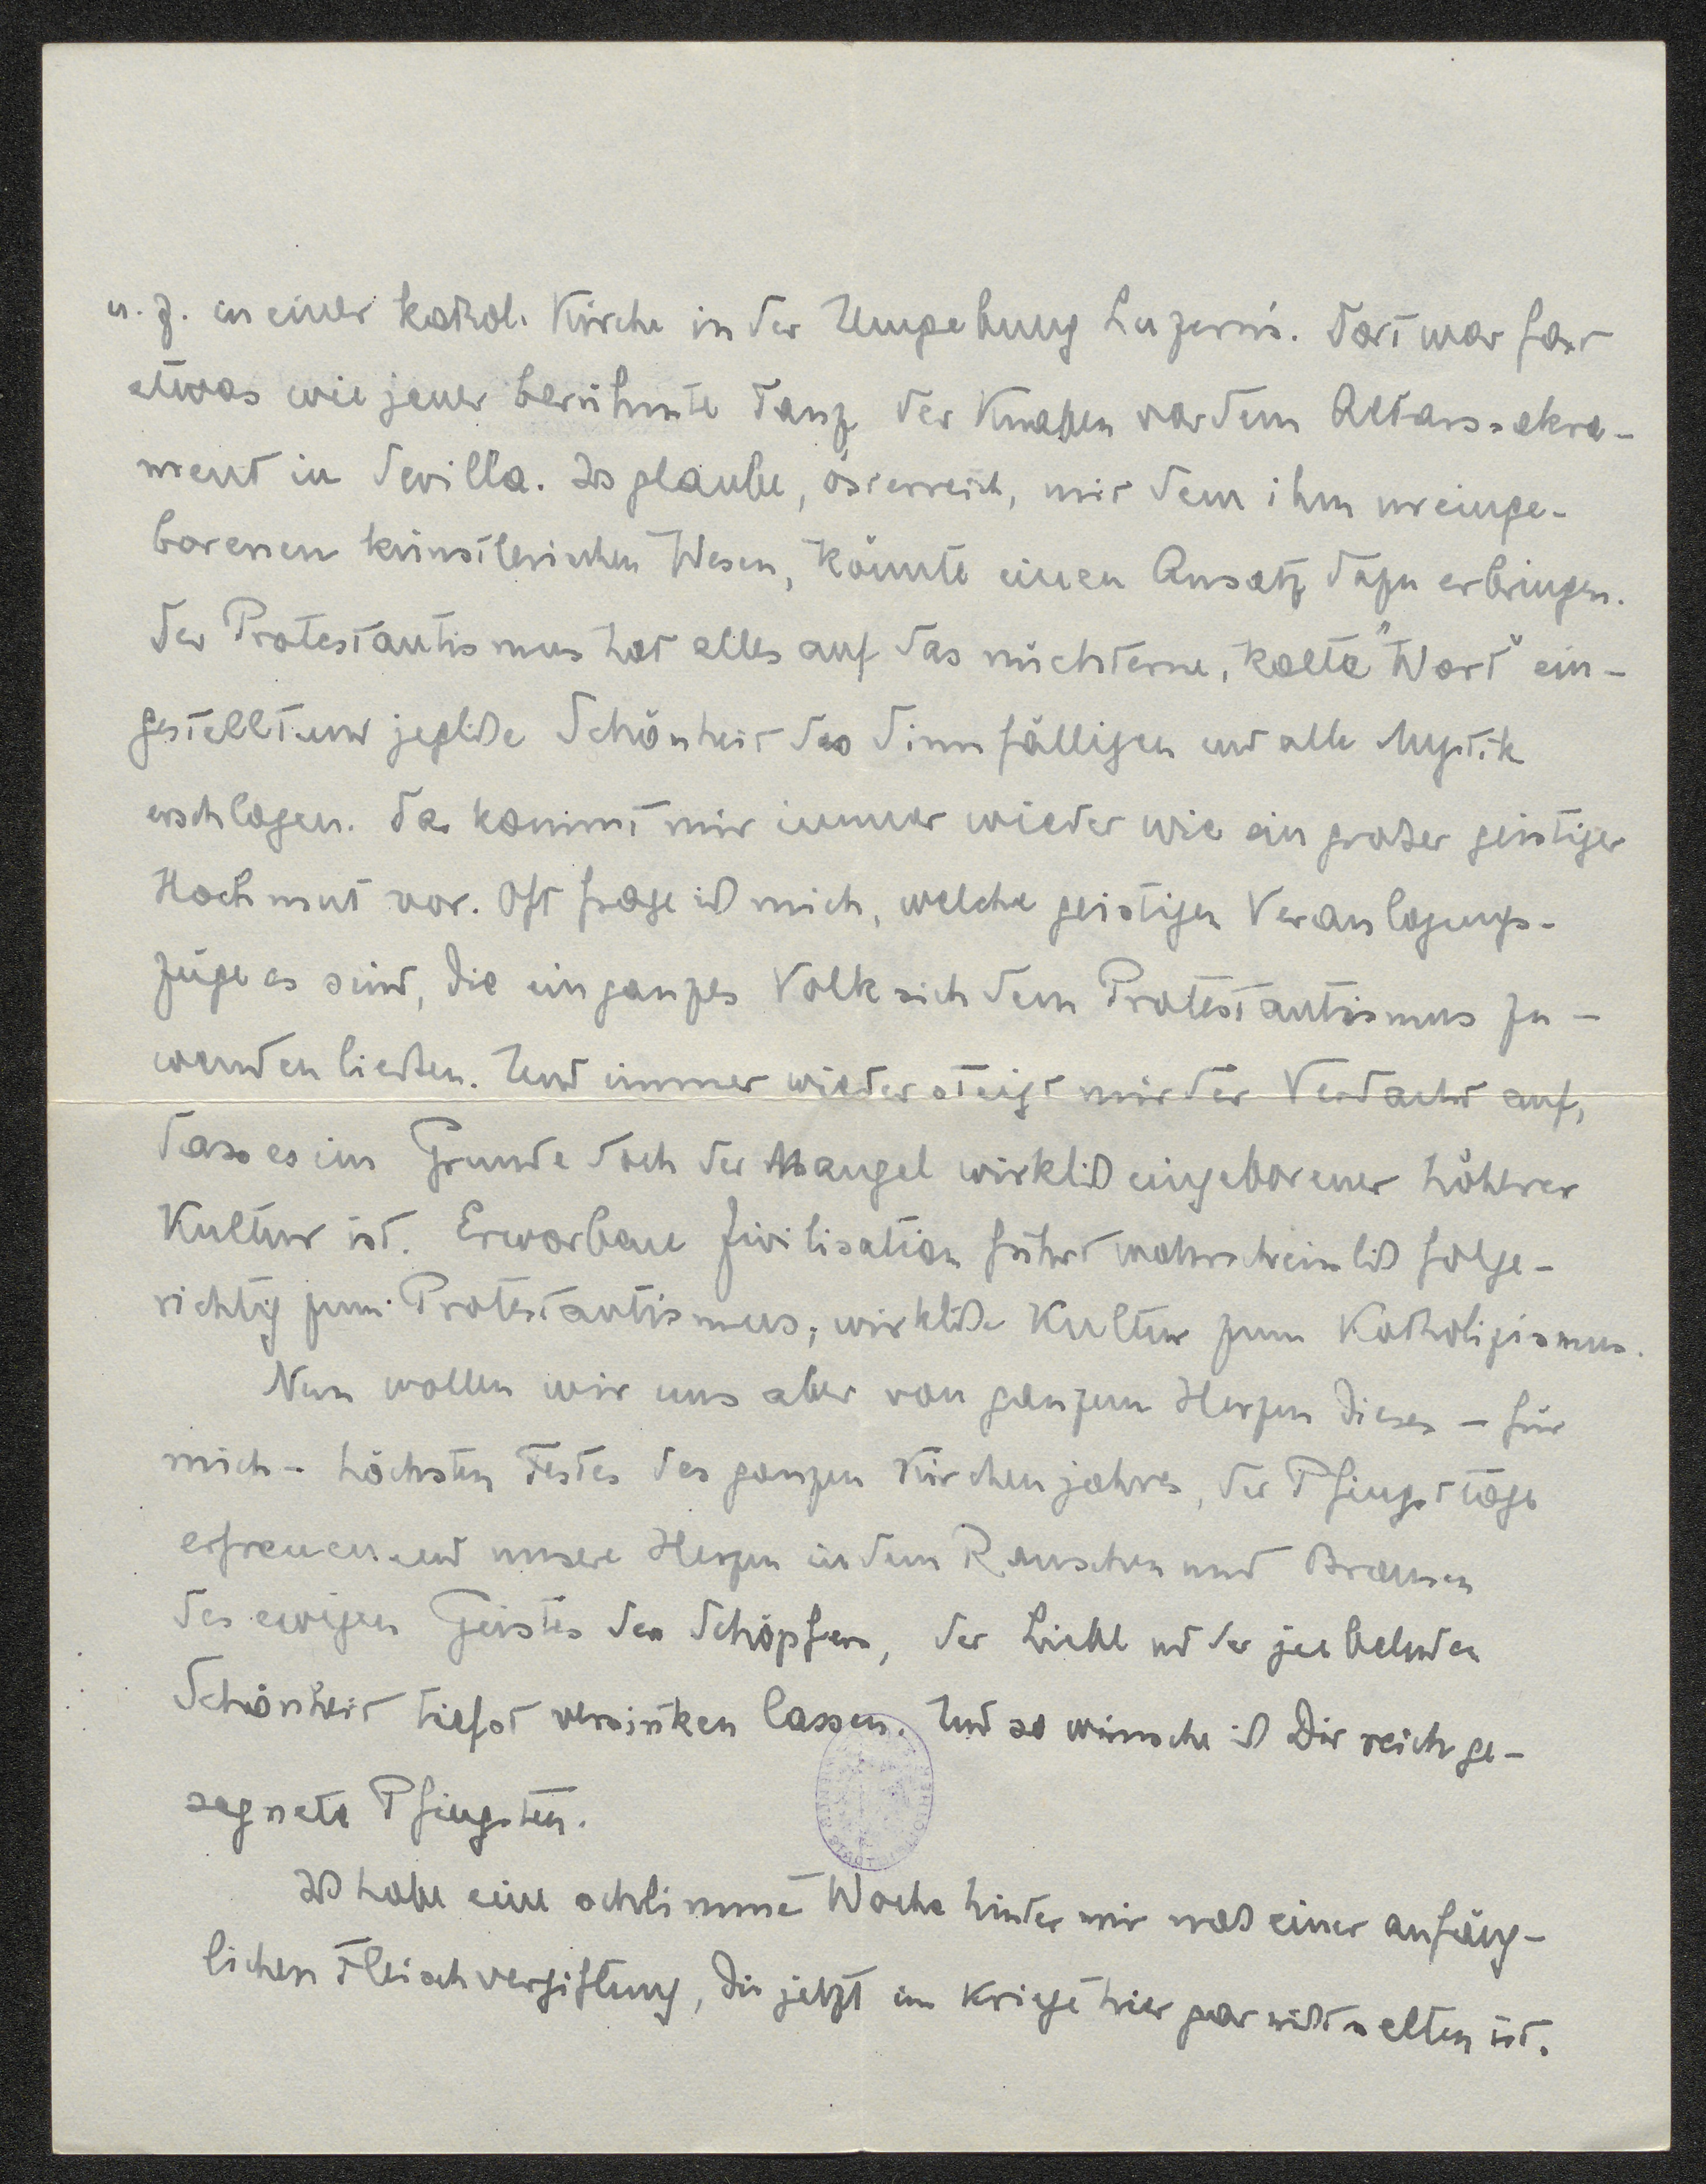 u. z. in einer kathol. Kirche in der Umgebung Luzern's. Dort war fast
etwas wie jener berühmte Tanz der Knaben vor dem Altarssakra-
ment in Sevilla. Ich glaube, Österreich, mit dem ihm ureinge-
borenen künstlerischen Wesen, könnte einen Ansatz dazu erbringen.
Der Protestantismus hat alles auf das nüchterne, kalte "Wort" ein-
gestellt und jegliche Schönheit des Sinnfälligen und alle Mystik
erschlagen. Da kommt mir immer wieder wie ein großer geistiger
Hochmut vor. Oft frage ich mich, welche geistigen Veranlagungs-
züge es sind, die ein ganzes Volk sich dem Protestantismus zu-
wenden ließen. Und immer wieder steigt mir der Verdacht auf,
dass es im Grunde doch der Mangel wirklich eingeborener höherer
Kultur ist. Erworbene Zivilisation führt wahrscheinlich folge-
richtig zum Protestantismus; wirkliche Kultur zum Katholizismus.
Nun wollen wir uns aber von ganzem Herzen dieses – für
mich – höchsten Festes des ganzen Kirchenjahres, der Pfingsttage
erfreuen und unsere Herzen in dem Rauschen und Brausen
des ewigen Geistes des Schöpfers, der Liebe und der jubelnden
Schönheit tiefst versinken lassen. Und so wünsche ich Dir reich ge-
segnete Pfingsten.
Ich habe eine schlimme Woche hinter mir nach einer anfäng-
lichen Fleischvergiftung, die jetzt im Kriege hier gar nicht selten ist.